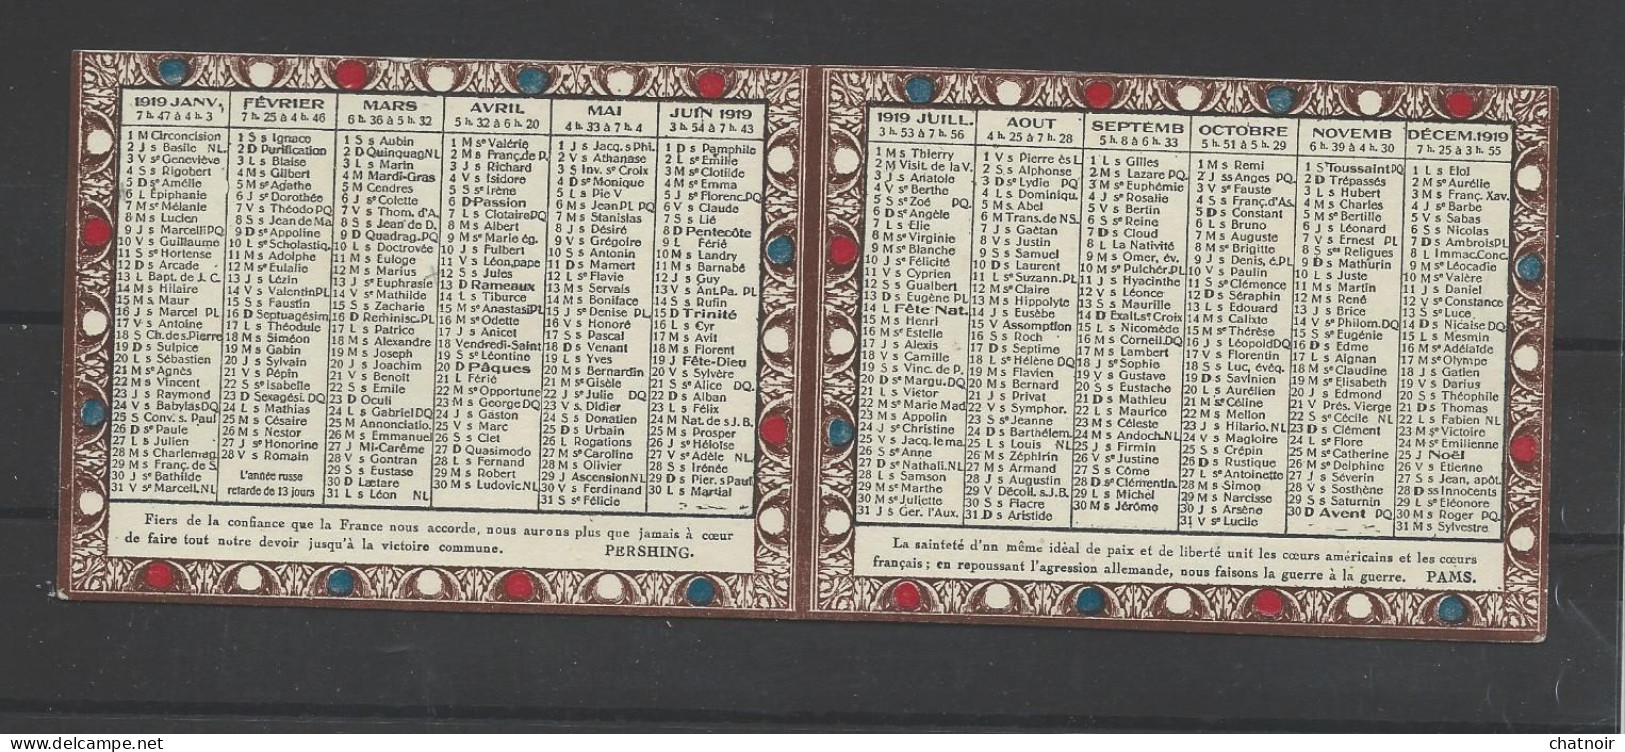 1919 JANV,
7 h. 47 à 4 h. 3
1 M Circoncision
2 J s Basile NL.
3 V sᵉ Geneviève
4 S s Rigobert
5 D sᵉ Amélie
6 L Épiphanie
7 M sᵉ Mélanie
8 M s Lucien
9 J s Marcelli PQ
10 V s Guillaume
11 S s Hortense
12 D s Arcade
13 L Bapt. de J. C.
14 M s Hilaire
15 M s. Maur
16 J s Marcel PL
17 V s Antoine
18 S Ch. des. Pierre
19 D s Sulpice
20 L s Sébastien
21 M sᵉ Agnès
22 M s Vincent
23 J s Raymond
24 V s Babylas DQ
25 S Conv. s. Paul
26 D sᵉ Paule
27 L s Julien
28 M s Charlemag.
29 M s Franç. de S.
30 J sᵉ Bathilde
31 V sᵉ Marcell. NL
FÉVRIER
7 h. 25 à 4 h. 46
1 S s Ignace
2 D Purification
3 L s Blaise
4 M s Gilbert
5 M sᵉ Agathe
6 J sᵉ Dorothée
7 V s Théodo PQ
8 S s Jean de Ma
9 D sᵉ Appoline
10 L sᵉ Scholastiq.
11 M s Adolphe
12 M sᵉ Eulalie
13 J s Lézin
14 V s Valentin PL
15 S s Faustin
16 D Septuagésim
17 L s Théodule
18 M s Siméon
19 M s Gabin
20 J s Sylvain
21 V s Pépin
22 S sᵉ Isabelle
23 D Sexagési. DQ
24 L s Mathias
25 M s Césaire
26 M s Nestor
27 J sᵉ Honorine
28 V s Romain
L'année russe
retarde de 13 jours
MARS
6 h. 36 à 5 h. 32
1 S s Aubin
2 D Quinquag NL
3 L s Marin
4 M Mardi-Gras
5 M Cendres
6 J sᵉ Colette
7 V s Thom. d'A.
8 S s Jean de D.
9 D Quadrag. PQ
10 L s Doctrovée
11 M s Euloge
12 M s Marius
13 J sᵉ Euphrasie
14 V sᵉ Mathilde
15 S s Zacharie
16 D Reminisc. PL
17 L s Patrice
18 M s Alexandre
19 M s Joseph
20 J s Joachim
21 V s Benoît
22 S s Emile
23 D Oculi
24 L s Gabriel DQ
25 M Annonciatio.
26 M s Emmanuel
27 J Mi-Carême
28 V s Gontran
29 S s Eustase
30 D Lætare
31 L s Léon NL
AVRIL
5 h. 32 à 6 h. 20
1 M sᵉ Valérie
2 M s Franç. de P.
3 J s Richard
4 V s Isidore
5 S sᵉ Irène
6 D Passion
7 L s Clotaire PQ
8 M s Albert
9 M sᵉ Marie ég.
10 J s Fulbert
11 V s Léon, pape
12 S s Jules
13 D Rameaux
14 L s Tiburce
15 M sᵉ Anastasi PL
16 M sᵉ Odette
17 J s Anicet
18 Vendredi-Saint
19 S sᵉ Léontine
20 D Pâques
21 L Férié
22 M sᵉ Opportune
23 M s George DQ
24 J s Gaston
25 V s Marc
26 S s Clet
27 D Quasimodo
28 L s Fernand
29 M s Robert
30 M s Ludovic NL
MAI
4 h. 33 à 7 h. 4
1 J s Jacq. s Phi.
2 V s Athanase
3 S Inv. sᵉ Croix
4 D sᵉ Monique
5 L s Pie V
6 M s Jean PL PQ
7 M s Stanislas
8 J s Désiré
9 V s Grégoire
10 S s Antonin
11 D s Mamert
12 L sᵉ Flavie
13 M s Servais
14 M s Boniface
15 J sᵉ Denise PL
16 V s Honoré
17 S s Pascal
18 D s Venant
19 L s Yves
20 M s Bernardin
21 M sᵉ Gisèle
22 J sᵉ Julie DQ
23 V s. Didier
24 S s Donatien
25 D s Urbain
26 L Rogations
27 M sᵉ Caroline
28 M s Olivier
29 J Ascension NL
30 V s Ferdinand
31 S sᵉ Félicie
JUIN 1919
3 h. 54 à 7 h. 43
1 D s Pamphile
2 L sᵉ Emilie
3 M sᵉ Clotilde
4 M sᵉ Emma
5 J sᵉ Florenc. PQ
6 V s Claude
7 S s Lié
8 D Pentecôte
9 L Férié
10 M s Landry
11 M s Barnabé
12 J s Guy
13 V s Ant. Pa. PL
14 S s Rufin
15 D Trinité
16 L s Cyr
17 M s Avit
18 M s Florent
19 J Fête-Dieu
20 V s Sylvère
21 S s Alice DQ.
22 D s Alban
23 L s Félix
24 M Nat. de s J. B.
25 M s Prosper
26 J sᵉ Héloïse
27 V sᵉ Adèle NL.
28 S s Irénée
29 D s Pier. s Paul
30 L s Martial
Fiers de la confiance que la France nous accorde, nous aurons plus que jamais à cœur
de faire tout notre devoir jusqu'à la victoire commune. PERSHING.
1919 JUILL.
3 h. 53 à 7 h. 56
1 M s Thierry
2 M Visit. de la V.
3 J s Anatole
4 V sᵉ Berthe
5 S sᵉ Zoé PQ
6 D sᵉ Angèle
7 L s Élie
8 M sᵉ Virginie
9 M sᵉ Blanche
10 J sᵉ Félicité
11 V s Cyprien
12 S s Gualbert
13 D s Eugène PL
14 L Fête Nat.
15 M s Henri
16 M sᵉ Estelle
17 J s Alexis
18 V s Camille
19 S s Vinc. de P.
20 D sᵉ Margu. DQ
21 L s Victor
22 M sᵉ Marie Mad
23 M s Appolin
24 J sᵉ Christine
25 V s Jacq. le ma.
26 S sᵉ Anne
27 D sᵉ Nathali. NL
28 L s Samson
29 M sᵉ Marthe
30 M s Juliette
31 J s Ger. l'Aux.
AOUT
4 h. 25 à 7 h. 28
1 V s Pierre ès L
2 S s Alphonse
3 D sᵉ Lydie PQ
4 L s Dominiqu.
5 M s Abel
6 M Trans. de N.S.
7 J s Gaëtan
8 V s Justin
9 S s Samuel
10 D s Laurent
11 L sᵉ Suzann. PL
12 M sᵉ Claire
13 M s Hippolyte
14 J s Eusèbe
15 V Assomption
16 S s Roch
17 D s Septime
18 L sᵉ Hélène DQ
19 M s Flavien
20 M s Bernard
21 J s Privat
22 V s Symphor.
23 S sᵉ Jeanne
24 D s Barthélem.
25 L s Louis NL
26 M s Zéphirin
27 M s Armand
28 J s Augustin
29 V Décoll. s. J. B.
30 S s Fiacre
31 D s Aristide
SEPTEMB
5 h. 8 à 6 h. 33
1 L s Gilles
2 M s Lazare PQ.
3 M sᵉ Euphémie
4 J sᵉ Rosalie
5 V s Bertin
6 S sᵉ Reine
7 D s Cloud
8 L La Nativité
9 M s Omer, év.
10 M sᵉ Pulchér. PL
11 J s Hyacinthe
12 V s Léonce
13 S s Maurille
14 D Exalt. sᵉ Croix
15 L s Nicomède
16 M s Corneil. DQ
17 M s Lambert
18 J sᵉ Sophie
19 V s Gustave
20 S s Eustache
21 D s Mathieu
22 L s Maurice
23 M s Céleste
24 M s Andoch. NL
25 J s Firmin
26 V sᵉ Justine
27 S s Côme
28 D sᵉ Clémentin.
29 L s Michel
30 M s Jérôme
OCTOBRE
5 h. 51 à 5 h. 29
1 M s Remi
2 J ss Anges PQ.
3 V s Fauste
4 S s Franç. d'As
5 D s Constant
6 L s Bruno
7 M s Auguste
8 M sᵉ Brigitte
9 J s Denis, é. PL
10 V s Paulin
11 S sᵉ Clémence
12 D s Séraphin
13 L s Edouard
14 M s Calixte
15 M sᵉ Thérèse
16 J s Léopold DQ
17 V s Florentin
18 S s Luc, évq.
19 D s Savinien
20 L s Aurélien
21 M sᵉ Céline
22 M s Mellon
23 J s Hilario. NL
24 V s Magloire
25 S s Crépin
26 D s Rustique
27 L sᵉ Antoinette
28 M s Simon
29 M s Narcisse
30 J s Arsène
31 V sᵉ Lucile
NOVEMB
6 h. 39 à 4 h. 30
1 S Toussaint PQ
2 D Trépassés
3 L s Hubert
4 M s Charles
5 M sᵉ Bertille
6 J s Léonard
7 V s Ernest PL
8 S sᵉˢ Reliques
9 D s Mathurin
10 L s Juste
11 M s Martin
12 M s René
13 J s Brice
14 V sᵉ Philom. DQ
15 S sᵉ Eugénie
16 D s Edme
17 L s Aignan
18 M sᵉ Claudine
19 M sᵉ Elisabeth
20 J s Edmond
21 V Prés. Vierge
22 S sᵉ Cécile NL
23 D s Clément
24 L sᵉ Flore
25 M sᵉ Catherine
26 M sᵉ Delphine
27 J s Séverin
28 V s Sosthène
29 S s Saturnin
30 D Avent PQ
DÉCEM. 1919
7 h. 25 à 3 h. 55
1 L s Eloi
2 M sᵉ Aurélie
3 M s Franç. Xav.
4 J sᵉ Barbe
5 V s Sabas
6 S s Nicolas
7 D s Ambrois PL
8 L Immac. Conc.
9 M sᵉ Léocadie
10 M sᵉ Valère
11 J s Daniel
12 V sᵉ Constance
13 S sᵉ Luce
14 D s Nicaise DQ
15 L s Mesmin
16 M sᵉ Adélaïde
17 M sᵉ Olympe
18 J s Gatien
19 V s Darius
20 S s Théophile
21 D s Thomas
22 L s Fabien NL
23 M sᵉ Victoire
24 M sᵉ Emilienne
25 J Noël
26 V s Etienne
27 S s Jean, apôt.
28 D ss Innocents
29 L sᵉ Eléonore
30 M s Roger PQ
31 M s Sylvestre
La sainteté d'nn même idéal de paix et de liberté unit les cœurs américains et les cœurs
français ; en repoussant l'agression allemande, nous faisons la guerre à la guerre. PAMS.
delcampe.net
chatnoir